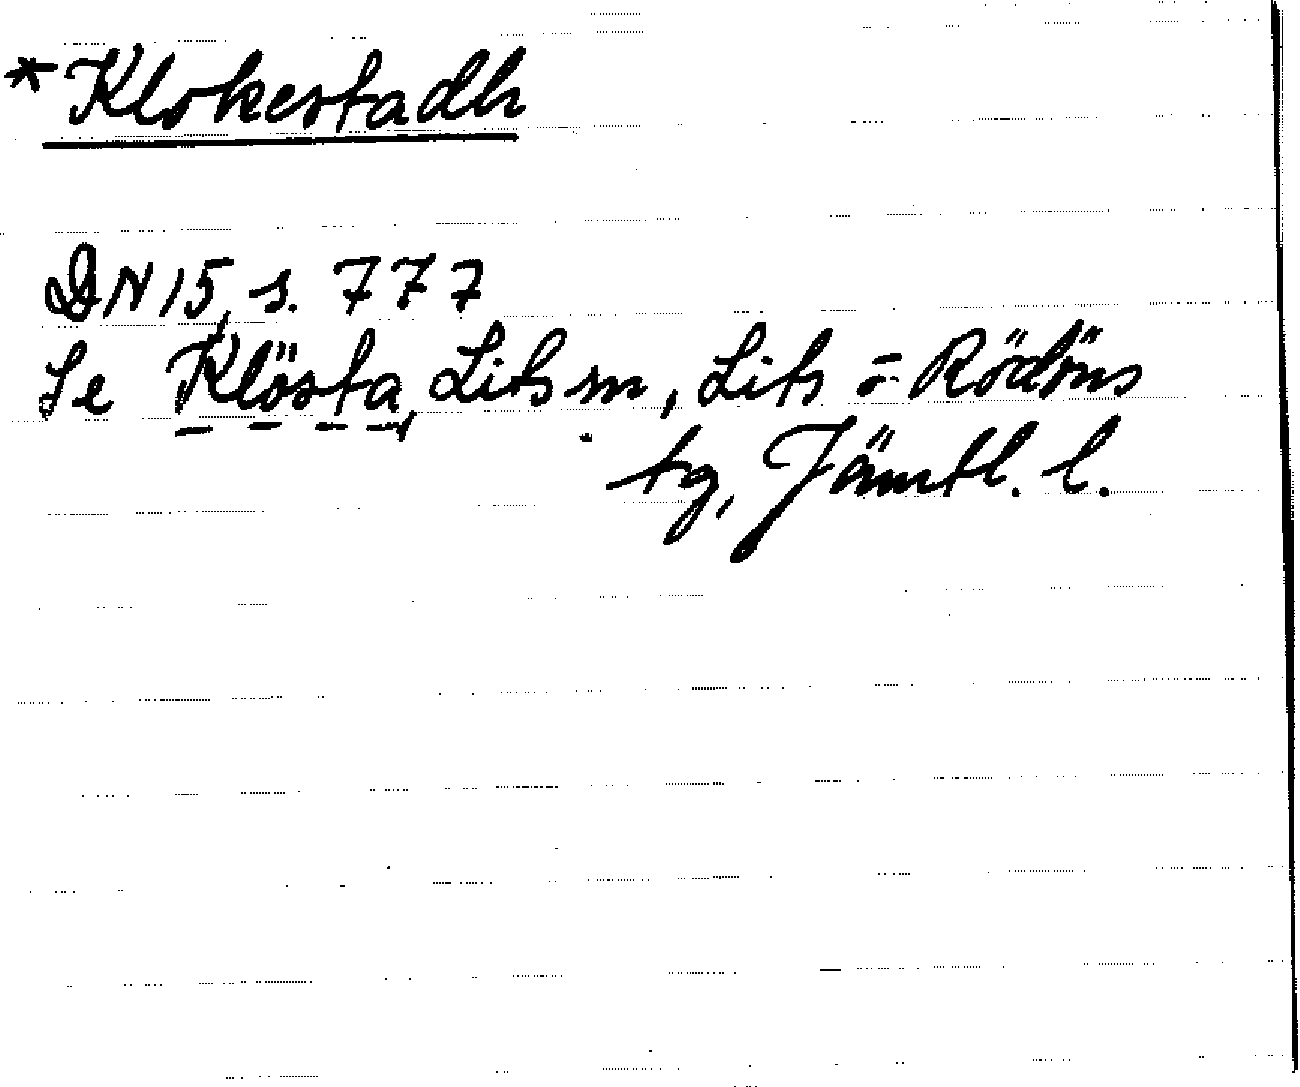 *Klokestadh
DN 15, s. 777
Se Klösta, Lits sn, Lits o. Rödöns
tg, Jämtl. l.